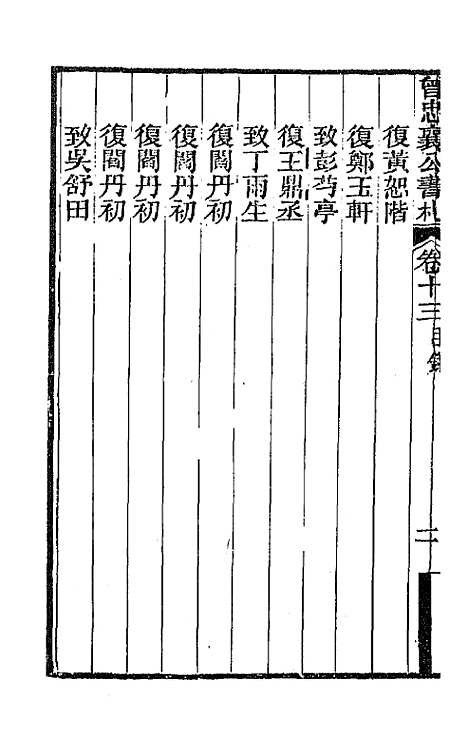 曾忠襄公書札
卷十三目錄
二
復黃恕階
復鄭玉軒
致彭芍亭
復王鼎丞
致丁雨生
復閻丹初
復閻丹初
復閻丹初
復閻丹初
致吳舒田